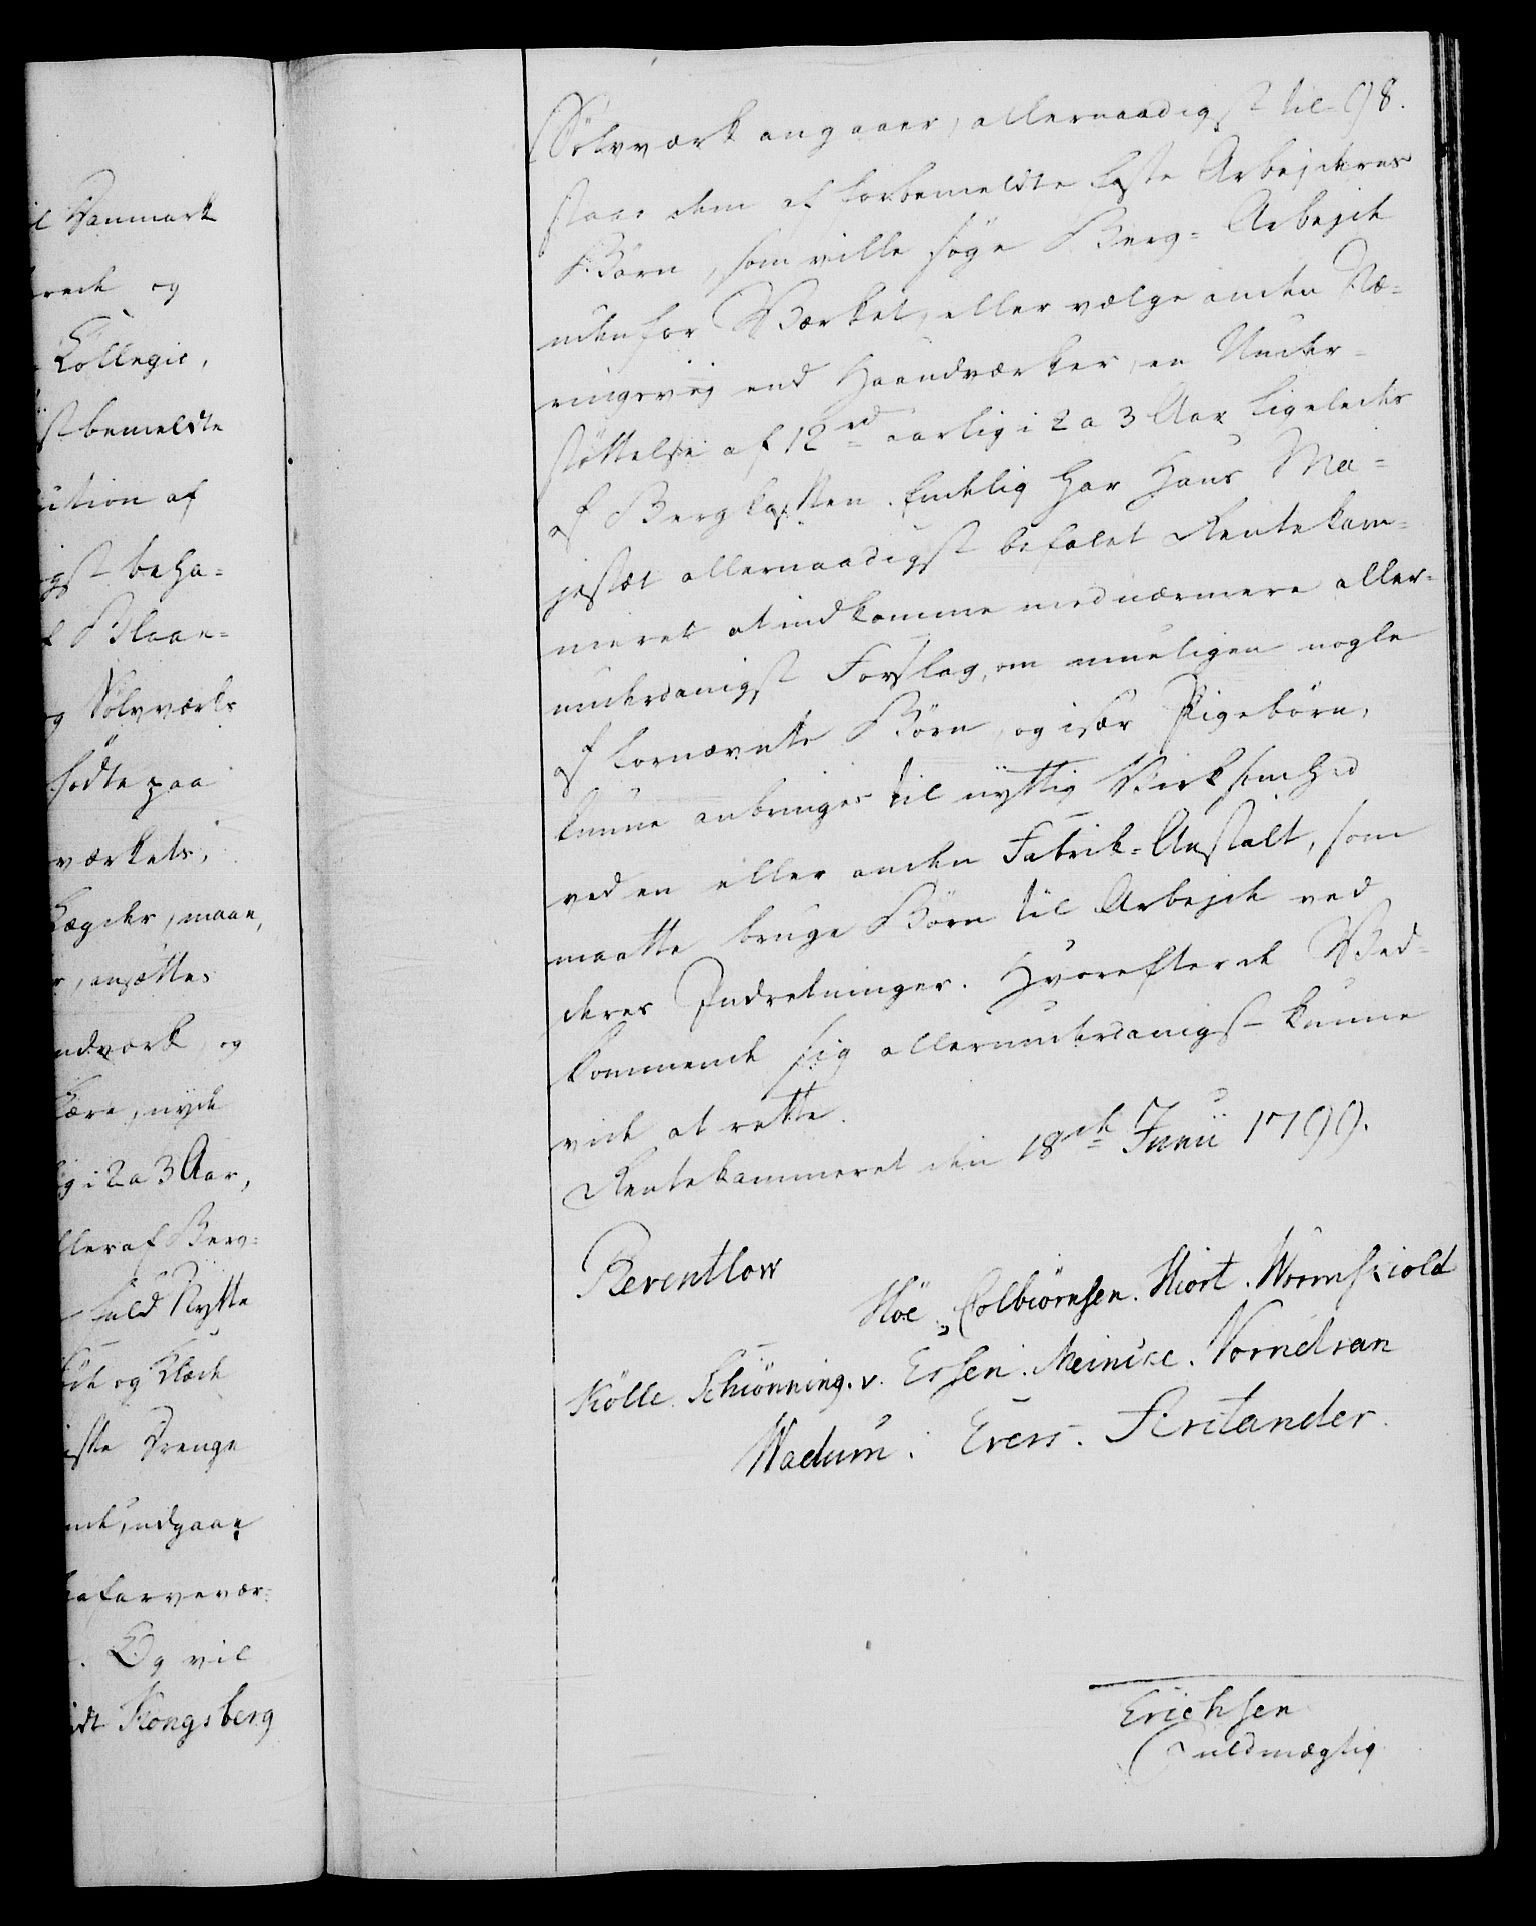 il Danmark
og
Collegie,
st bemeldte
ution af
gst beha=
Blaae=
og Sølvværks
fødte paa
værkets,
Lægder, maae,
ansættes
ndværk, og
Lære, nyde
ig i 2 a 3 Aar,
ller af Berg=
fuld Nytte
og Klæde
Drenge
udgaae
farvevær=
. Og vil
idt Kongsberg
Sølvværk angaaer, allernaadigst til 98.
staae dem af forbemeldte faste Arbejderes
Börn, som ville söge Berg= Arbejde
udenfor Værket, eller vælge anden Næ=
ringsvej end Haandværker, en Under=
støttelse af 12 rd aarlig i 2 a 3 Aar ligeledes
af Bergkassen. Endelig har Hans Ma=
jestæt allernaadigst befalet Rentekam=
meret at indkomme med nærmere aller=
underdanigst Forslag, om mueligen nogle
af fornævnte Börn, og især Pigebörn,
kunne anbringes til nyttig Virksomhed
ved en eller anden Fabrik=Anstalt, som
maatte bruge Börn til Arbejde ved
deres Indretninger. Hvorefter de Ved=
kommende sig allerunderdanigst kunne
vide at rette.
Rentekammeret den 18de Junii 1799.
Reventlow
Höe Colbiörnsen. Hiort. Wormskiold
Kölle Schiönning. v. Essen. Meincke. Vorndran
Wadum. Evers. Striltander.
Erichsen
Fuldmægtig